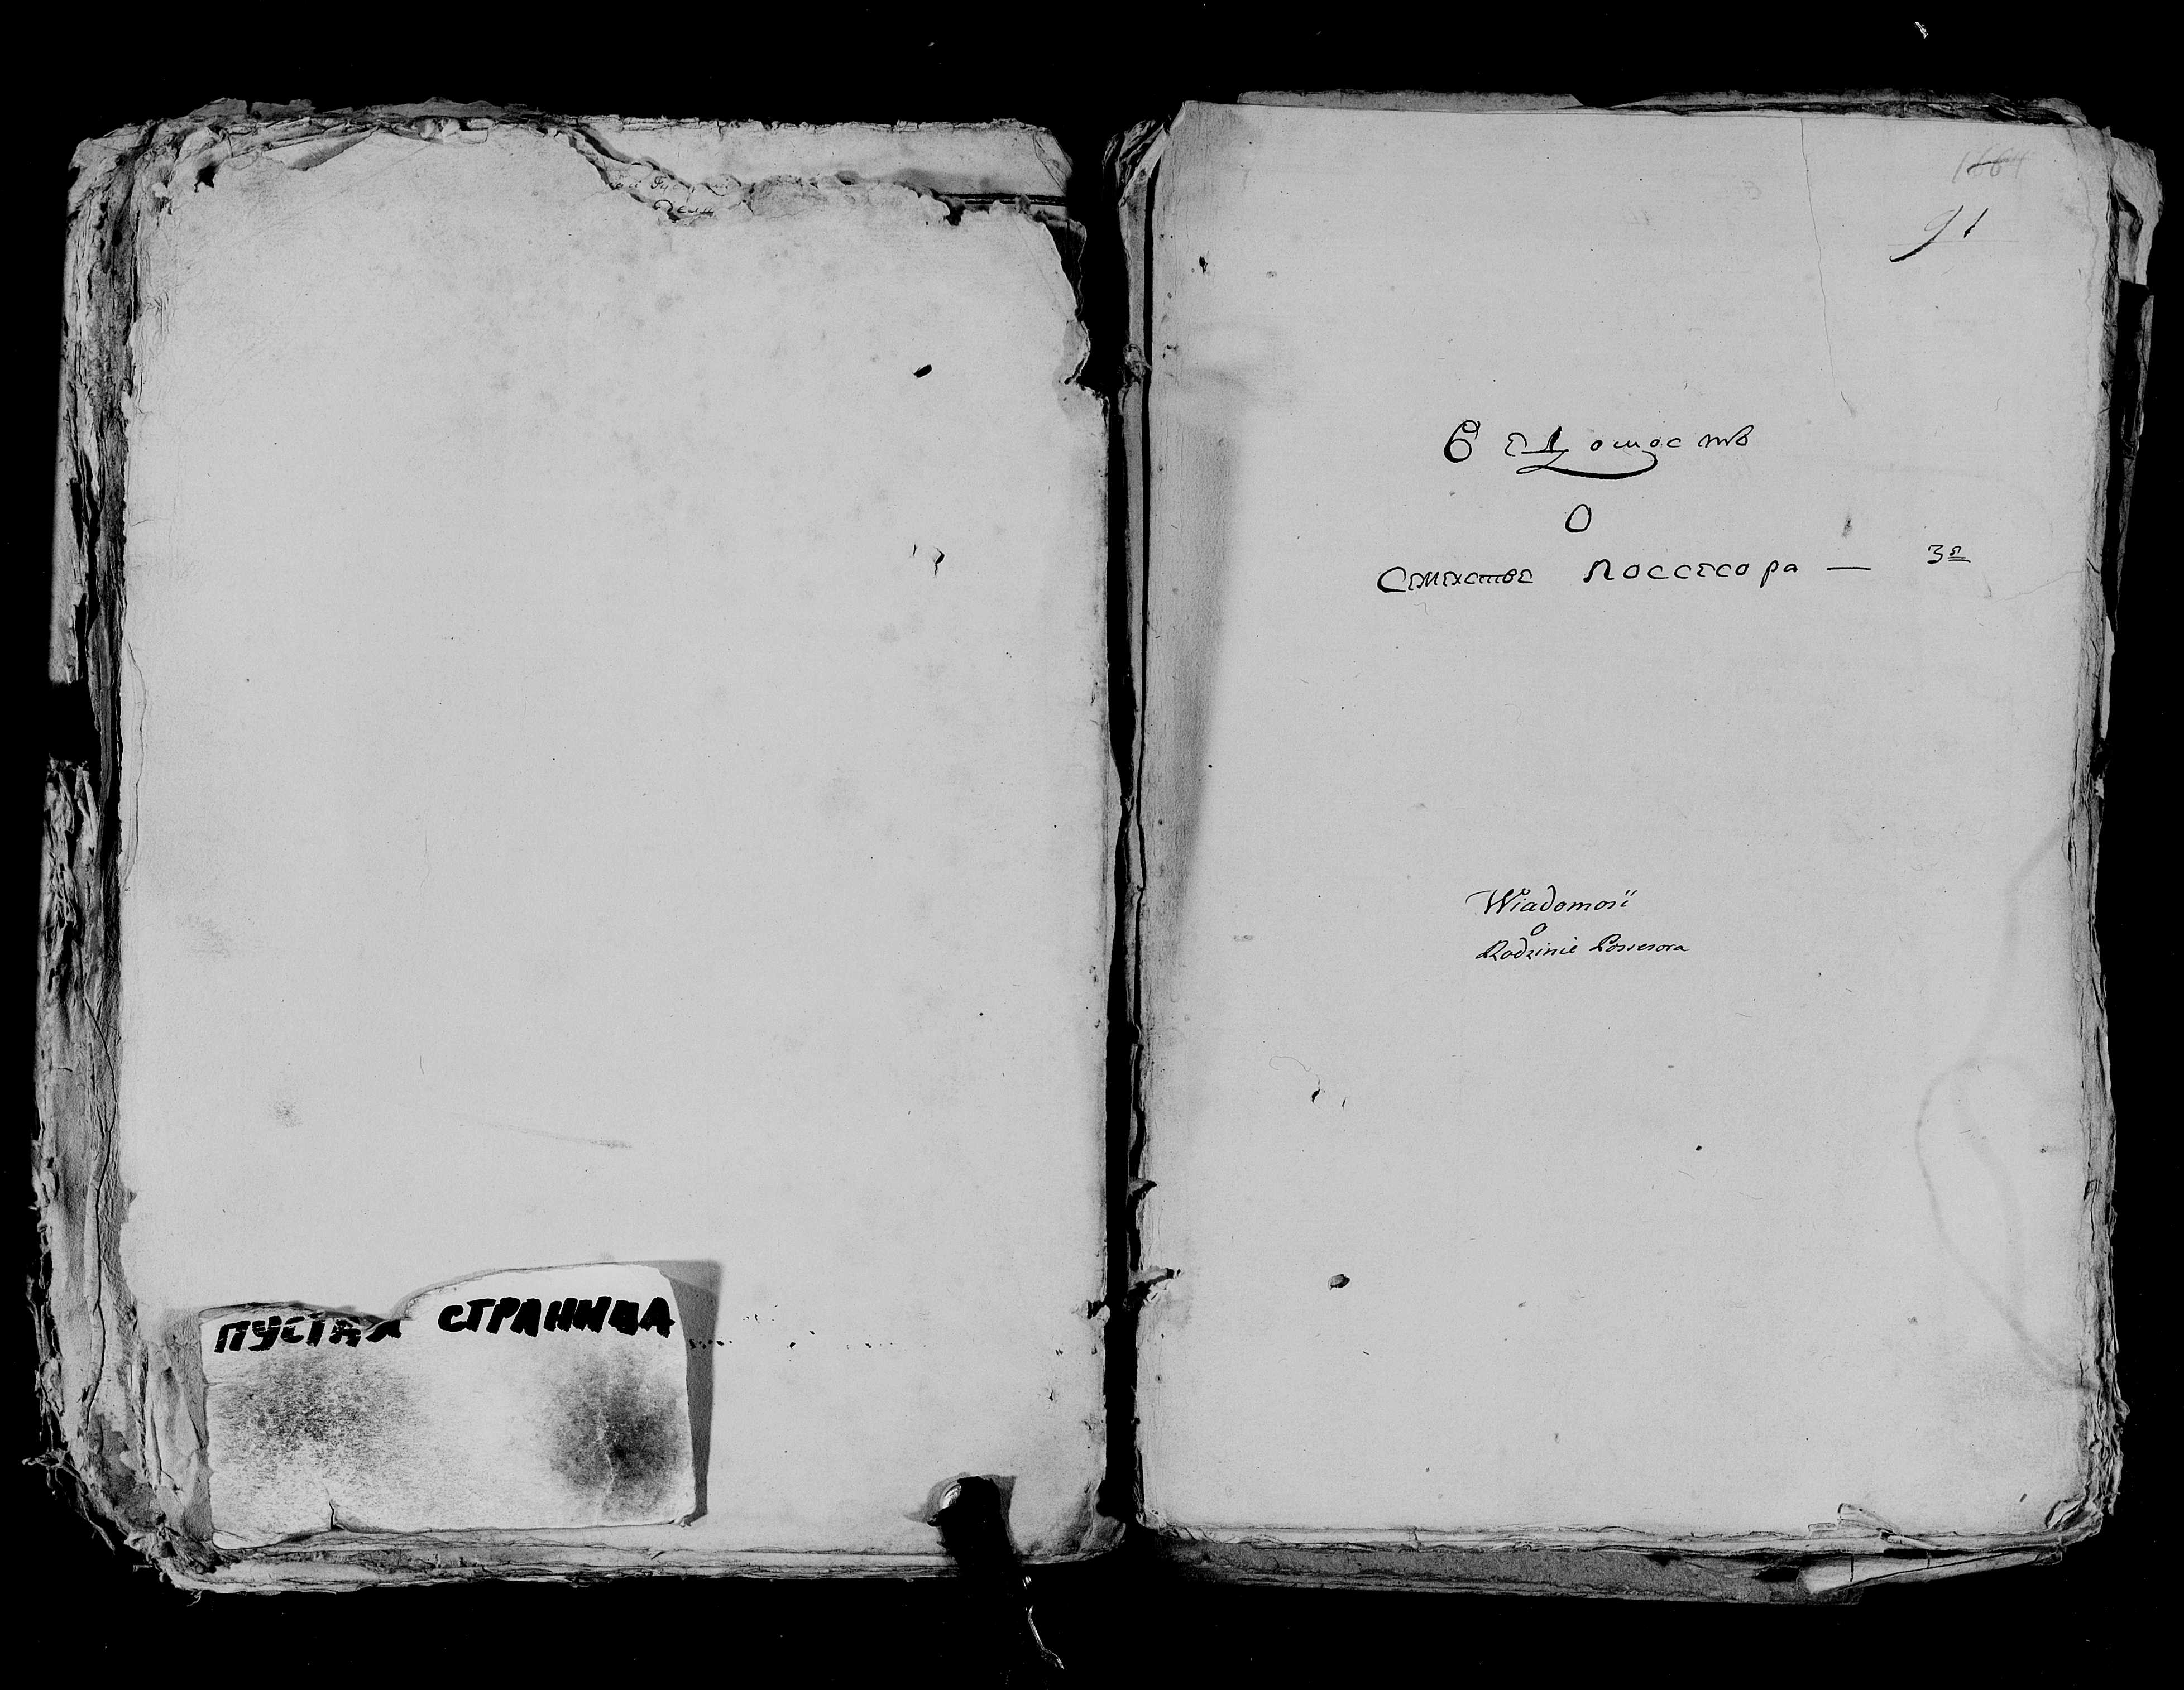 ПУСТАЯ СТРАНИЦА
91
Ведомость
О
Семействе Поссесора — 3я
Wiadomość
o
Rodzinie Possesora